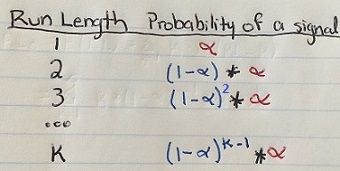 Run Length Probability of a signal
1 α
2 (1-α) * α
3 (1-α)² * α
...
K (1-α)ᴷ⁻¹ * α